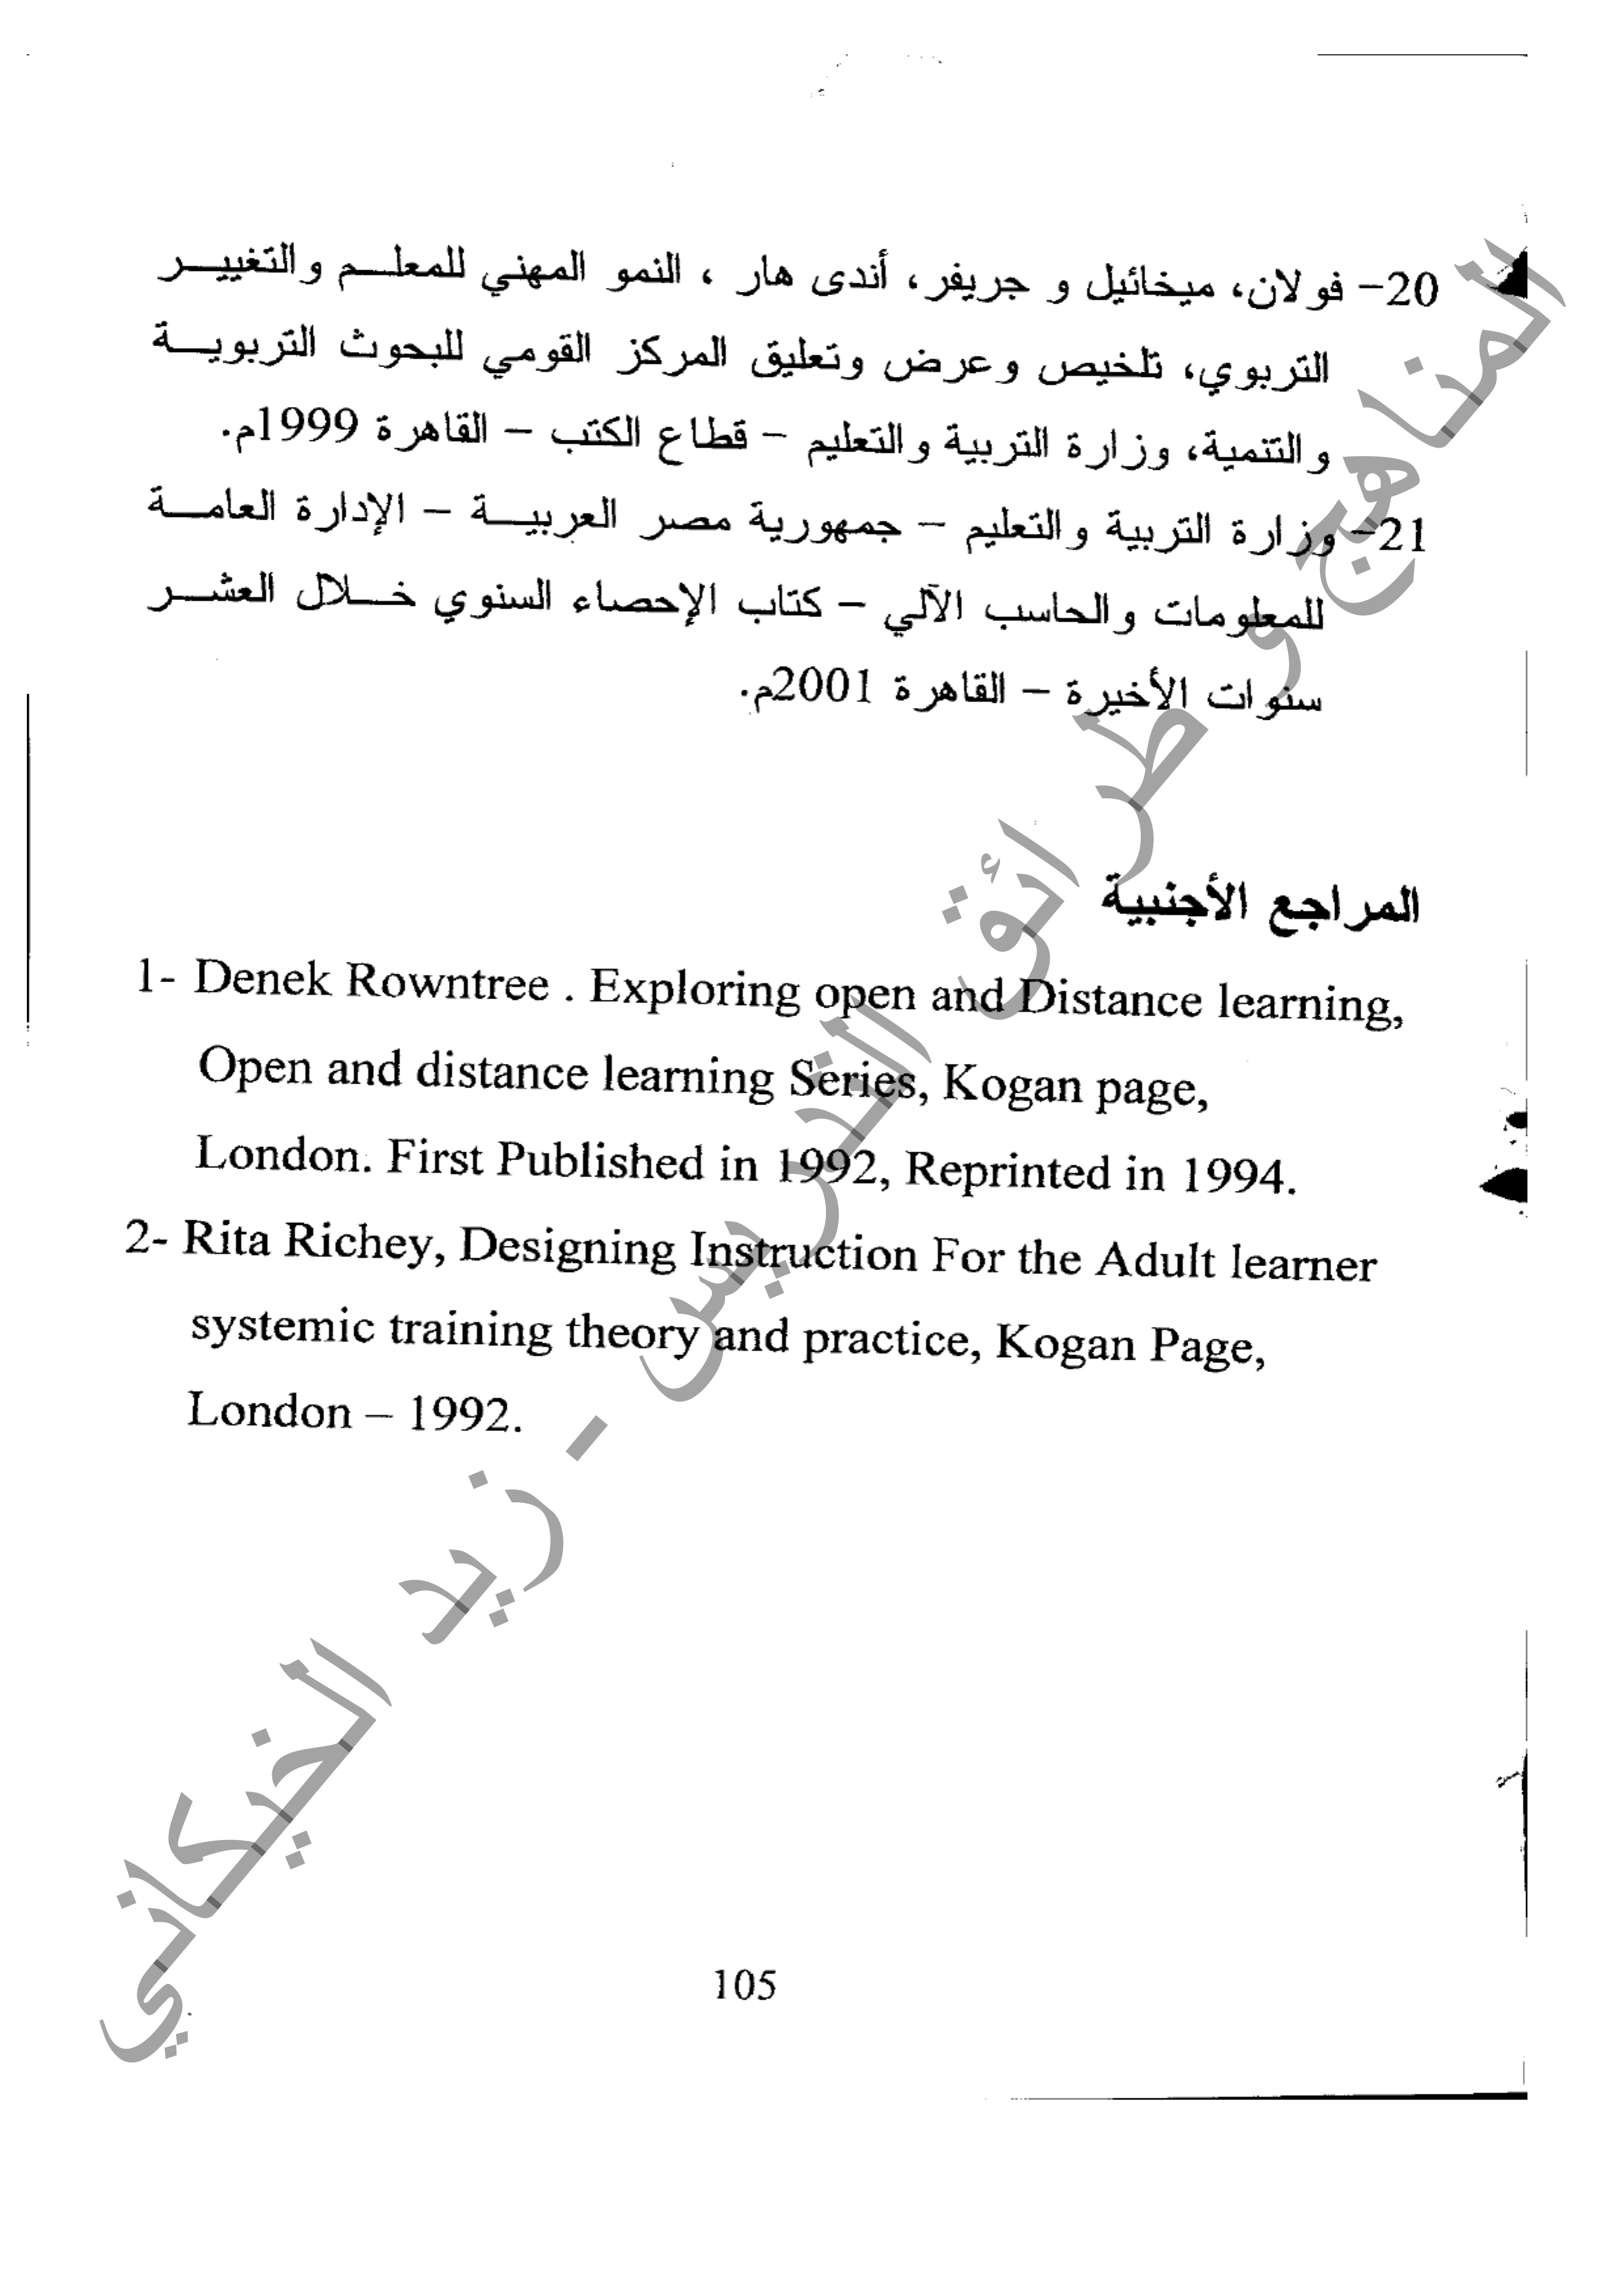 20- فولان، ميخائيل و جريفر، أندى هار ، النمو المهني للمعلم والتغيير
التربوي، تلخيص وعرض وتعليق المركز القومي للبحوث التربوية
والتنمية، وزارة التربية والتعليم – قطاع الكتب – القاهرة 1999م.
21- وزارة التربية والتعليم – جمهورية مصر العربية – الإدارة العامة
للمعلومات والحاسب الآلي – كتاب الإحصاء السنوي خلال العشر
سنوات الأخيرة – القاهرة 2001م.
المراجع الأجنبية
1- Denek Rowntree . Exploring open and Distance learning,
Open and distance learning Series, Kogan page,
London. First Published in 1992, Reprinted in 1994.
2- Rita Richey, Designing Instruction For the Adult learner
systemic training theory and practice, Kogan Page,
London – 1992.
105
المناهج و طرائق التدريس - زيد الخيكاني